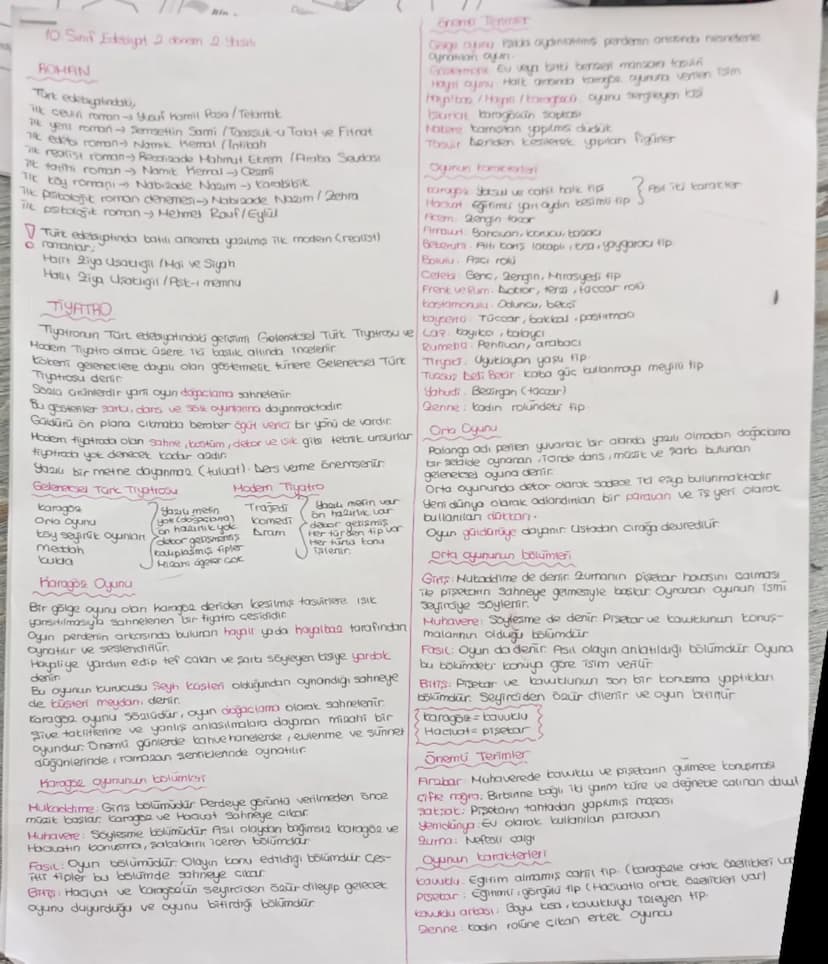 10. Sınıf Edebiyat 2 dönem 2 Yazılı
ROMAN
Türk edebiyatındaki,
ilk çeviri roman → Yusuf Kamil Paşa / Telamak
ilk yerli roman → Şemsettin Sami / Taaşşuk-u Talat ve Fitnat
ilk edebi roman → Namık Kemal / İntibah
ilk realist roman → Recaizade Mahmut Ekrem / Araba Sevdası
ilk tarihi roman → Namık Kemal → Cezmi
ilk köy romanı → Nabizade Nazım → Karabibik
ilk psikolojik roman denemesi → Nabizade Nazım / Zehra
ilk psikolojik roman → Mehmet Rauf / Eylül
Türk edebiyatında batılı anlamda yazılmış ilk modern (realist)
romanlar;
Halit Ziya Uşaklıgil / Mai ve Siyah
Halit Ziya Uşaklıgil / Aşk-ı memnu
TİYATRO
Tiyatronun Türk edebiyatındaki gelişimi Geleneksel Türk Tiyatrosu ve
Modern Tiyatro olmak üzere iki başlık altında incelenir
Kökeni geleneklere dayalı olan göstermelik türlere Geleneksel Türk
Tiyatrosu denir
Sözlü ürünlerdir yani oyun doğaçlama sahnelenir
Bu gösteriler şarkı, dans ve söz oyunlarına dayanmaktadır
Güldürü ön plana çıkmakla beraber öğüt verici bir yönü de vardır
Modern tiyatroda olan sahne, kostüm, dekor ve ışık gibi teknik unsurlar
tiyatroda yok denecek kadar azdır.
Yazılı bir metne dayanmaz (tuluat). Ders verme önemsenir
Geleneksel Türk Tiyatrosu Modern Tiyatro
Karagöz
Orta Oyunu
Köy Seyirlik oyunları
meddah
kukla
yazılı metin
yok (doğaçlama)
ön hazırlık yok
dekor gelişmemiş
kalıplaşmış tipler
Mizahi ögeler çok
Trajedi
Komedi
Dram
Yazılı metin var
ön hazırlık var
dekor gelişmiş
Her türden tip var
Her türlü konu
işlenir.
Karagöz Oyunu
Bir gölge oyunu olan karagöz deriden kesilmiş tasvirlere ışık
yansıtılmasıyla sahnelenen bir tiyatro çeşididir
Oyun perdenin arkasında bulunan hayali yada hayalbaz tarafından
oynatılır ve seslendirilir.
Hayaliye yardım edip tef çalan ve şarkı söyleyen kişiye yardak
denir
Bu oyunun kurucusu Şeyh Küşteri olduğundan oynandığı sahneye
de küşteri meydanı denir.
Karagöz oyunu sözlüdür, oyun doğaçlama olarak sahnelenir.
Şive taklitlerine ve yanlış anlaşılmalara dayanan mizahi bir
oyundur. Önemli günlerde kahvehanelerde, evlenme ve sünnet
düğünlerinde, ramazan şenliklerinde oynatılır.
Karagöz oyununun bölümleri
Mukaddime: Giriş bölümüdür Perdeye görüntü verilmeden önce
müzik başlar. Karagöz ve Hacivat sahneye çıkar.
Muhavere: Söyleşme bölümüdür Asıl olaydan bağımsız Karagöz ve
Hacivatın konuşma, şakalarını içeren bölümdür
Fasıl: Oyun bölümüdür. Olayın konu edildiği bölümdür Çeş-
itli tipler bu bölümde sahneye çıkar.
Bitiş: Hacivat ve Karagözün seyirciden özür dileyip gelecek
oyunu duyurduğu ve oyunu bitirdiği bölümdür
Önemli Terimler
Gölge oyunu: Işıkla aydınlatılmış perdenin arkasında nesnelerle
oynanılan oyun.
Göstermelik: Ev veya bitki benzeri manzara tasviri
Hayal oyunu: Halk arasında karagöz oyununa verilen isim
Hayalbaz / Hayali / Karagözcü: oyunu sergileyen kişi
Işkırlak: Karagözün şapkası
Nareke: Kamıştan yapılmış düdük
Tasvir: Deriden kesilerek yapılan figürler
Oyunun Karakterleri
Karagöz: Yoksul ve cahil halk tipi
Hacivat: Eğitimli yarı aydın kesimli tip
Asıl iki karakter
Acem: Zengin tacir
Arnavut: Bahçıvan, korucu, bozacı
Beberuhi: Altı karış lakaplı, kısa, yaygaracı tip
Bolulu: Aşçı rolü
Çelebi: Genç, Zengin, Mirasyedi tip
Frenk ve Rum: Doktor, terzi, tüccar rolü
Kastamonulu: Oduncu, bekçi
Kayserili: Tüccar, bakkal, pastırmacı
Laz: Kayıkçı, kalaycı
Rumelili: Pehlivan, arabacı
Tiryaki: Uyuklayan yaşlı tip
Tuzsuz Deli Bekir: Kaba güç kullanmaya meyilli tip
Yahudi: Bezirgan (tüccar)
Zenne: Kadın rolündeki tip
Orta Oyunu
Palanga adı verilen yuvarlak bir alanda yazılı olmadan doğaçlama
bir şekilde oynanan, içinde dans, müzik ve şarkı bulunan
geleneksel oyuna denir.
Orta oyununda dekor olarak sadece iki eşya bulunmaktadır
Yeni dünya olarak adlandırılan bir paravan ve iş yeri olarak
kullanılan dükkan.
Oyun güldürüye dayanır. Ustadan çırağa devredilir.
Orta oyununun bölümleri
Giriş: Mukaddime de denir. Zurnanın Pişekar havasını çalması
ile pişekarın sahneye gelmesiyle başlar. Oynanan oyunun ismi
seyirciye söylenir.
Muhavere: Söyleşme de denir. Pişekar ve kavuklunun konuş-
malarının olduğu bölümdür
Fasıl: Oyun da denir. Asıl olayın anlatıldığı bölümdür. Oyuna
bu bölümdeki konuya göre isim verilir
Bitiş: Pişekar ve kavuklunun son bir konuşma yaptıkları
bölümdür. Seyirciden özür dilenir ve oyun bitirilir
Karagöz = Kavuklu
Hacivat = pişekar
Önemli Terimler
Arzbar: Muhaverede kavuklu ve pişekarın gülmece konuşması
Çifte nağra: Birbirine bağlı iki yarım küre ve değnekle çalınan davul
Şakşak: Pişekarın tahtadan yapılmış maşası
Yenidünya: Ev olarak kullanılan paravan
Zurna: Nefesli çalgı
Oyunun karakterleri
Kavuklu: Eğitim almamış cahil tip. (karagözle ortak özellikleri var
Pişekar: Eğitimli, görgülü tip (Hacivatla ortak özellikleri var)
Kavuklu arkası: Boyu kısa, kavukluyu izleyen tip.
Zenne: Kadın rolüne çıkan erkek oyuncu